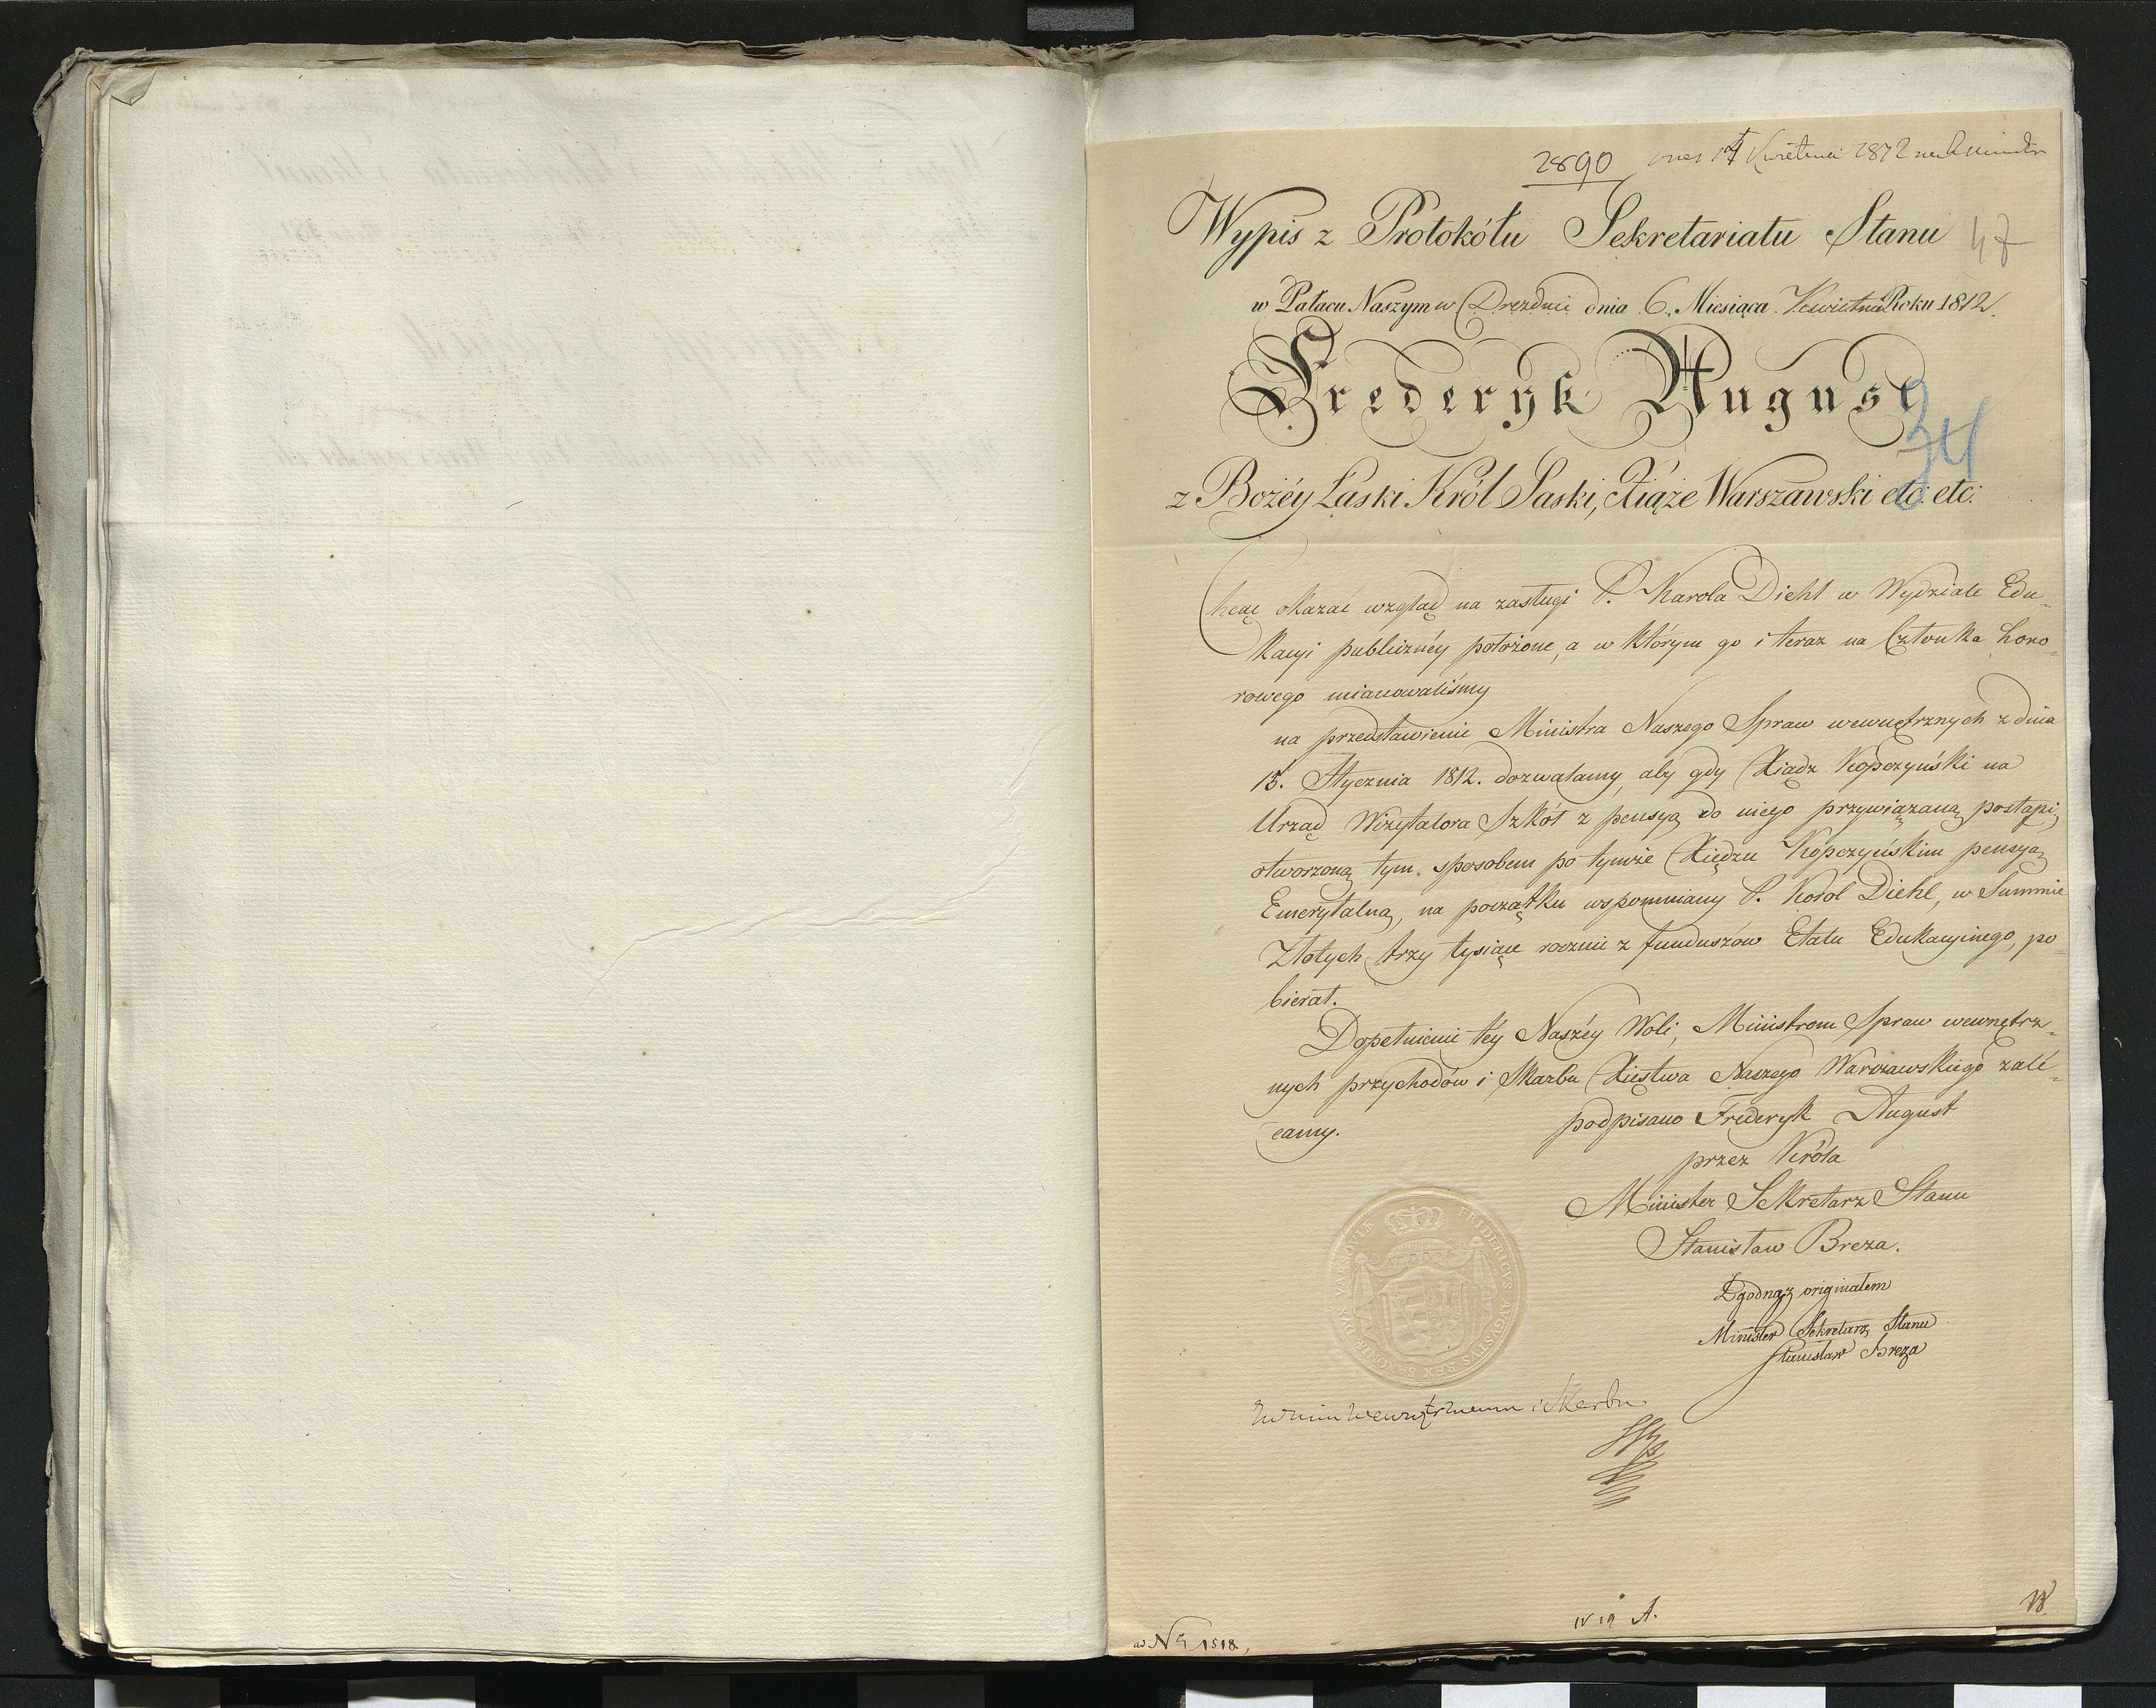 2890
Kwietnia 1812
Wypis z Protokółu Sekretariatu Stanu
47
w Pałacu Naszym w Dreźnie dnia 6. Miesiąca Kwietnia Roku 1812.
Fryderyk August
34
z Bożéy Łaski Król Saski, Xiąże Warszawski etc: etc:
Chcąc okazać wzgląd na zasługi P. Karola Diehl w Wydziale Edu-
kacyi publicznéy położone, a w którym go i teraz na Członka hono-
rowego mianowaliśmy
na przedstawienie Ministra Naszego Spraw wewnętrznych z dnia
15. Stycznia 1812. dozwalamy, aby gdy Xiądz Kopczyński na
Urząd Wizytatora Szkół z pensyą do niego przywiązaną postąpi,
otworzoną tym sposobem po tymże Xiędzu Kopczyńskim pensyą
Emerytalną, na początku wspomniany P. Karol Diehl, w Summie
Złotych trzy tysiące rocznie z funduszów Etatu Edukacyinego, po-
bierał.
Dopełnienie téy Naszéy Woli, Ministrom Spraw wewnętrz-
nych przychodów i Skarbu Xięstwa Naszego Warszawskiego zalé-
camy.
podpisano Fryderyk August
przez Króla
Minister Sekretarz Stanu
Stanisław Breza.
FRIDERICVS AVGVSTVS REX SAXONIÆ DVX VARSOVIÆ
Zgodno z originałem
Minister Sekretarz Stanu
Stanisław Breza
wewnętrznemu i Skarbu
IV 19 A.
ad Nr 1518.